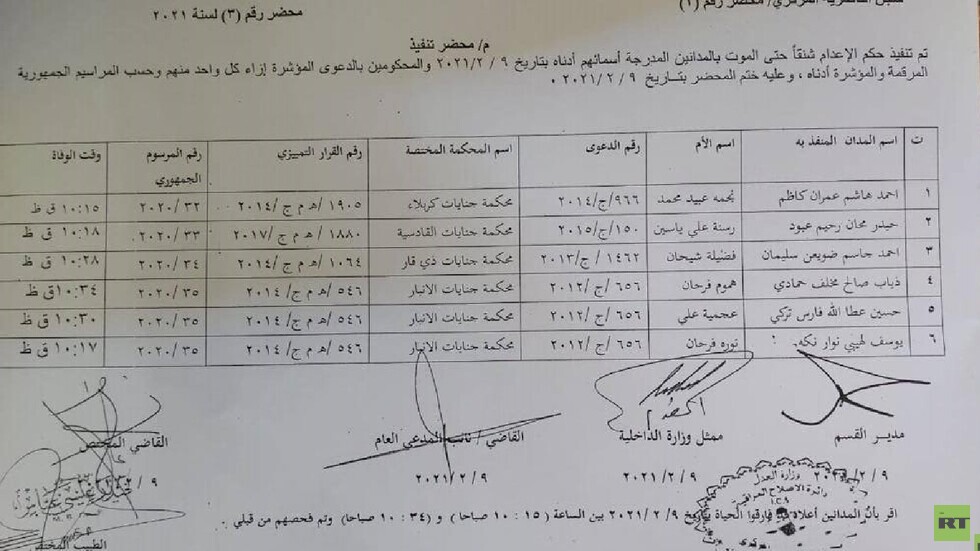 محضر رقم (٣) لسنة ٢٠٢١
محضر رقم (١)
م/ محضر تنفيذ
تم تنفيذ حكم الإعدام شنقاً حتى الموت بالمدانين المدرجة أسمائهم أدناه بتاريخ ٩ / ٢٠٢١/٢ والمحكومين بالدعوى المؤشرة إزاء كل واحد منهم وحسب المراسيم الجمهورية
المرقمة والمؤشرة أدناه ، وعليه ختم المحضر بتاريخ ٩ /٢ /٢٠٢١ .
ت اسم المدان المنفذ به اسم الأم رقم الدعوى اسم المحكمة المختصة رقم القرار التمييزي رقم المرسوم الجمهوري وقت الوفاة
١ احمد هاشم عمران كاظم نجمه عبيد محمد ٩٦٦/ج/٢٠١٤ محكمة جنايات كربلاء ١٩٠٥ /هـ م ج /٢٠١٤ ٣٢ /٢٠٢٠ ١٠:١٥ ق ظ
٢ حيدر محان رحيم عبود رسنة علي ياسين ١٥٠/ج/٢٠١٥ محكمة جنايات القادسية ١٨٨٠ /هـ م ج /٢٠١٧ ٣٣ /٢٠٢٠ ١٠:١٨ ق ظ
٣ احمد جاسم ضويعن سليمان فضيلة شيحان ١٤٦٢ /ج/٢٠١٣ محكمة جنايات ذي قار ١٠٦٤ /هـ م ج /٢٠١٤ ٣٤ /٢٠٢٠ ١٠:٢٨ ق ظ
٤ ذياب صالح مخلف حمادي هموم فرحان ٦٥٦ /ج /٢٠١٢ محكمة جنايات الانبار ٥٤٦ /هـ م ج/ ٢٠١٤ ٣٥ /٢٠٢٠ ١٠:٣٤ ق ظ
٥ حسين عطا الله فارس تركي عجمية علي ٦٥٦ /ج /٢٠١٢ محكمة جنايات الانبار ٥٤٦ /هـ م ج/ ٢٠١٤ ٣٥ /٢٠٢٠ ١٠:٣٠ ق ظ
٦ يوسف لهيبي نوار نكه نوره فرحان ٦٥٦ /ج /٢٠١٢ محكمة جنايات الانبار ٥٤٦ /هـ م ج/ ٢٠١٤ ٣٥ /٢٠٢٠ ١٠:١٧ ق ظ
مدير القسم ممثل وزارة الداخلية القاضي / نائب المدعي العام القاضي المختص
٩ /٢ /٢٠٢١ ٩ /٢ /٢٠٢١ ٩ /٢ /٢٠٢١ ٩ /٢
وزارة العدل
دائرة الاصلاح العراقية
اقر بأن المدانين أعلاه قد فارقوا الحياة بتاريخ ٩/ ٢/ ٢٠٢١ بين الساعة ( ١٥ : ١٠ صباحا ) و (٣٤ : ١٠ صباحا) وتم فحصهم من قبلي .
الطبيب
RT